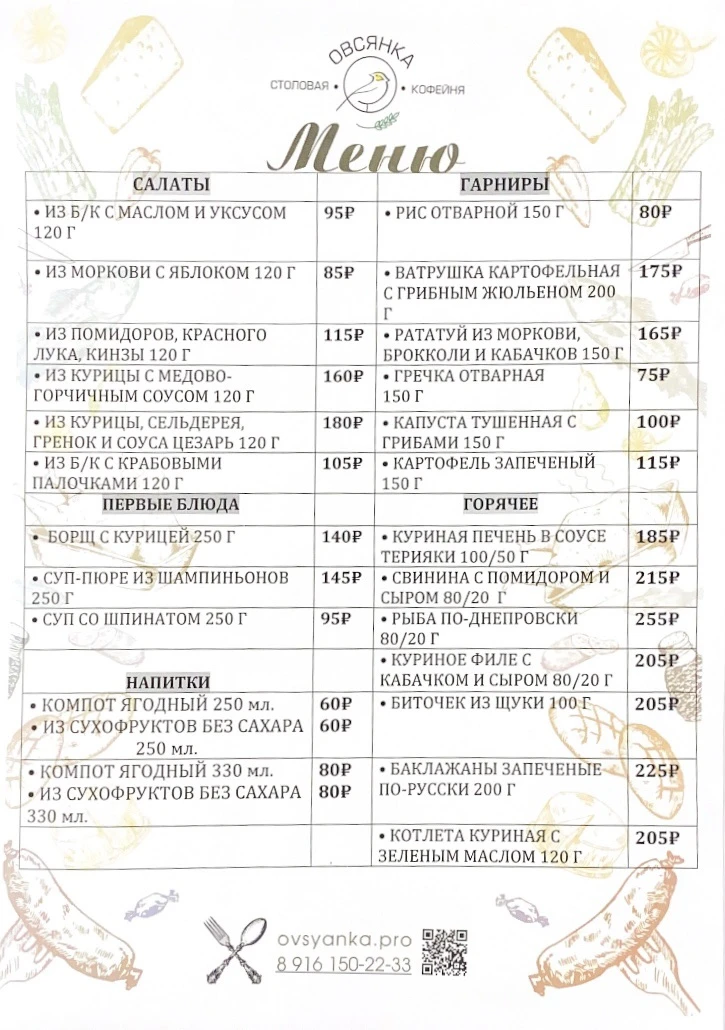 ОВСЯНКА
СТОЛОВАЯ • • КОФЕЙНЯ
Меню
САЛАТЫ
• ИЗ Б/К С МАСЛОМ И УКСУСОМ 95₽
120 Г
• ИЗ МОРКОВИ С ЯБЛОКОМ 120 Г 85₽
• ИЗ ПОМИДОРОВ, КРАСНОГО 115₽
ЛУКА, КИНЗЫ 120 Г
• ИЗ КУРИЦЫ С МЕДОВО- 160₽
ГОРЧИЧНЫМ СОУСОМ 120 Г
• ИЗ КУРИЦЫ, СЕЛЬДЕРЕЯ, 180₽
ГРЕНОК И СОУСА ЦЕЗАРЬ 120 Г
• ИЗ Б/К С КРАБОВЫМИ 105₽
ПАЛОЧКАМИ 120 Г
ПЕРВЫЕ БЛЮДА
• БОРЩ С КУРИЦЕЙ 250 Г 140₽
• СУП-ПЮРЕ ИЗ ШАМПИНЬОНОВ 145₽
250 Г
• СУП СО ШПИНАТОМ 250 Г 95₽
НАПИТКИ
• КОМПОТ ЯГОДНЫЙ 250 мл. 60₽
• ИЗ СУХОФРУКТОВ БЕЗ САХАРА 60₽
250 мл.
• КОМПОТ ЯГОДНЫЙ 330 мл. 80₽
• ИЗ СУХОФРУКТОВ БЕЗ САХАРА 80₽
330 мл.
ГАРНИРЫ
• РИС ОТВАРНОЙ 150 Г 80₽
• ВАТРУШКА КАРТОФЕЛЬНАЯ 175₽
С ГРИБНЫМ ЖЮЛЬЕНОМ 200
Г
• РАТАТУЙ ИЗ МОРКОВИ, 165₽
БРОККОЛИ И КАБАЧКОВ 150 Г
• ГРЕЧКА ОТВАРНАЯ 75₽
150 Г
• КАПУСТА ТУШЕННАЯ С 100₽
ГРИБАМИ 150 Г
• КАРТОФЕЛЬ ЗАПЕЧЕНЫЙ 115₽
150 Г
ГОРЯЧЕЕ
• КУРИНАЯ ПЕЧЕНЬ В СОУСЕ 185₽
ТЕРИЯКИ 100/50 Г
• СВИНИНА С ПОМИДОРОМ И 215₽
СЫРОМ 80/20 Г
• РЫБА ПО-ДНЕПРОВСКИ 255₽
80/20 Г
• КУРИНОЕ ФИЛЕ С 205₽
КАБАЧКОМ И СЫРОМ 80/20 Г
• БИТОЧЕК ИЗ ЩУКИ 100 Г 205₽
• БАКЛАЖАНЫ ЗАПЕЧЕНЫЕ 225₽
ПО-РУССКИ 200 Г
• КОТЛЕТА КУРИНАЯ С 205₽
ЗЕЛЕНЫМ МАСЛОМ 120 Г
ovsyanka.pro
8 916 150-22-33